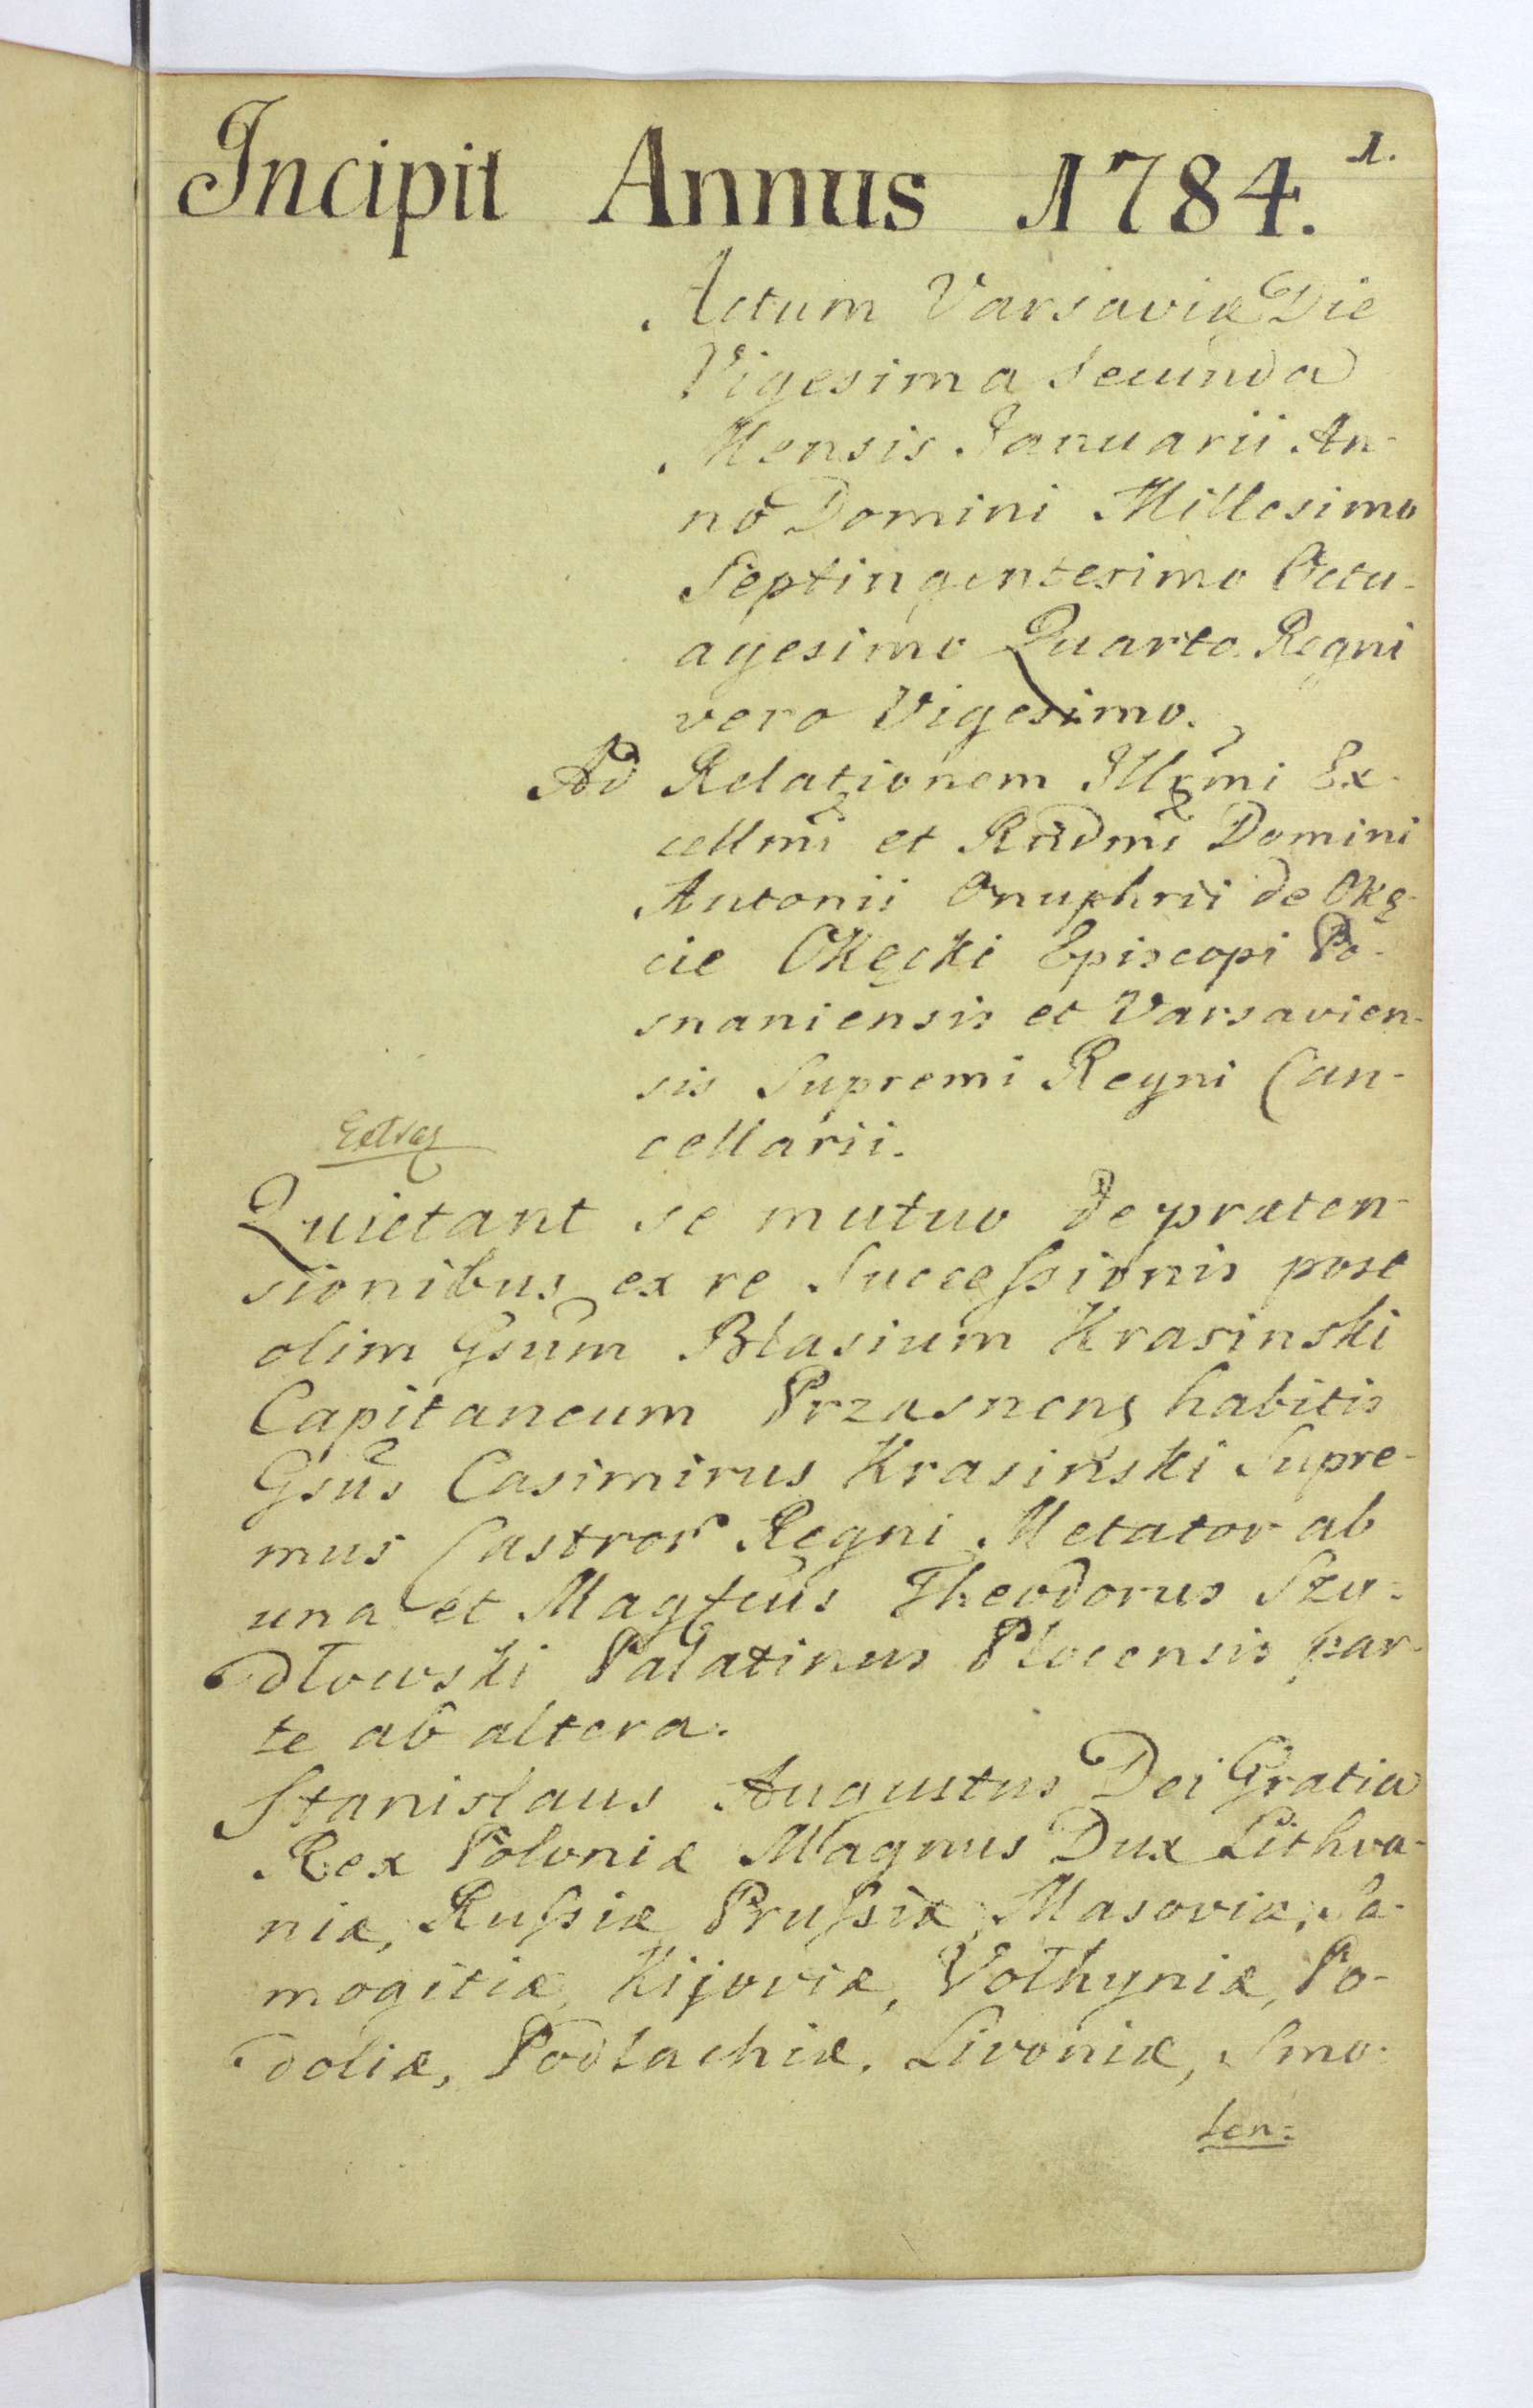 1.
Incipit Annus 1784.
Actum Varsaviæ Die
Vigesima Secunda
Mensis Januarii An-
no Domini Millesimo
Septingentesimo Octu-
agesimo Quarto Regni
vero Vigesimo.
Ad Relationem Illrmi Ex-
cellmi et Rndmi Domini
Antonii Onuphrii de Okę-
cie Okęcki Episcopi Po-
snaniensis et Varsavien-
sis Supremi Regni Can-
cellarii.
Quietant se mutuo de præten-
sionibus ex re Successionis post
olim Gsum Blasium Krasinski
Capitaneum Przasnens habitis
Gsus Casimirus Krasinski Supre-
mus Castror Regni Metator ab
una et Magfcus Theodorus Szy-
dłowski Palatinus Plocensis par-
te ab altera.
Stanislaus Augustus Dei Gratia
Rex Poloniæ Magnus Dux Lithva-
niæ, Russiæ Prussiæ, Masoviæ, Sa-
mogitiæ, Kijoviæ, Volhyniæ, Po-
doliæ, Podlachiæ, Livoniæ, Smo-
len: